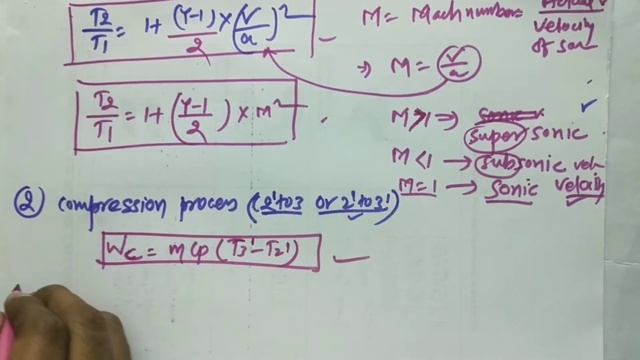 T2/T1 = 1+ (γ-1)/2 × (V/a)²
M = Mach number =
velocity
of
→ M = V/a
T2/T1 = 1+ (γ-1/2) × M²
M>1 ⇒
super sonic
M<1 → subsonic
M=1 → sonic velocity
② compression process (2'to3 or 2'to3')
Wc = m cp (T3' - T2')